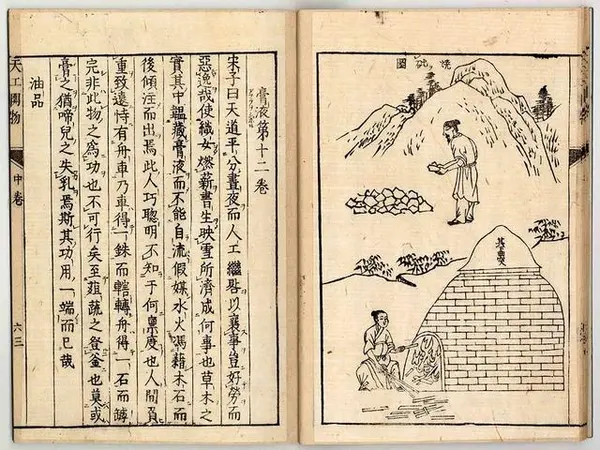 燒砒圖
膏液第十二卷
宋子曰天道平分晝夜而人工繼晷以襄事豈好勞而
惡逸哉使織女燃薪書生映雪所濟成何事也草木之
實其中韞藏膏液而不能自流假媒水火馮藉木石而
後傾注而出焉此人巧聰明不知于何稟度也人間負
重致遠恃有舟車乃車得一銖而轄轉舟得一石而罅
完非此物之為功也不可行矣至菹蔬之登釜也莫或
膏之猶啼兒之失乳焉斯其功用一端而已哉
油品
天工開物 中卷 六三